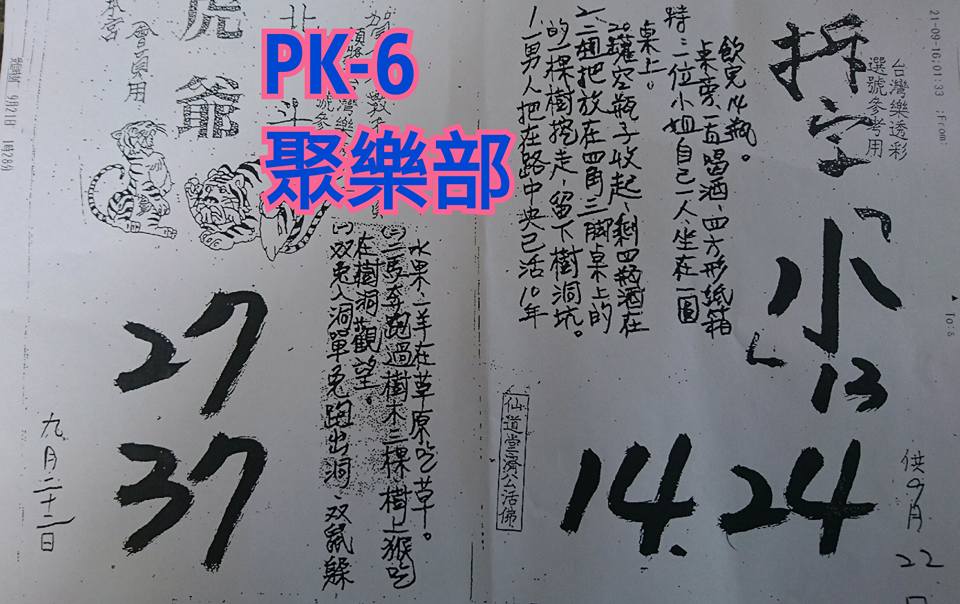 21-09-16;01:33 ;From:
台灣樂透彩
選號參考用
拆字
「小」
13
14.24
供9月
22
日
特:二位小姐自己一人坐在一圓
桌旁一直喝酒、四方形紙箱
飲完14瓶。
2.罐空瓶子收起、剩四瓶酒在
桌上。
二、個把放在四角三腳桌上的
的一棵樹挖走、留下樹洞坑。
1.一男人把在路中央已活10年
仙道堂濟公活佛
PK-6
聚樂部
水果、羊在草原吃草。
(二)二馬奔跑過樹木三棵樹上猴吃
在樹洞觀望。
(一)双兔入洞單兔跑出洞、双鼠躲
北斗
虎爺
會員用
27
37
九月二十二日
9月21日 1時28分